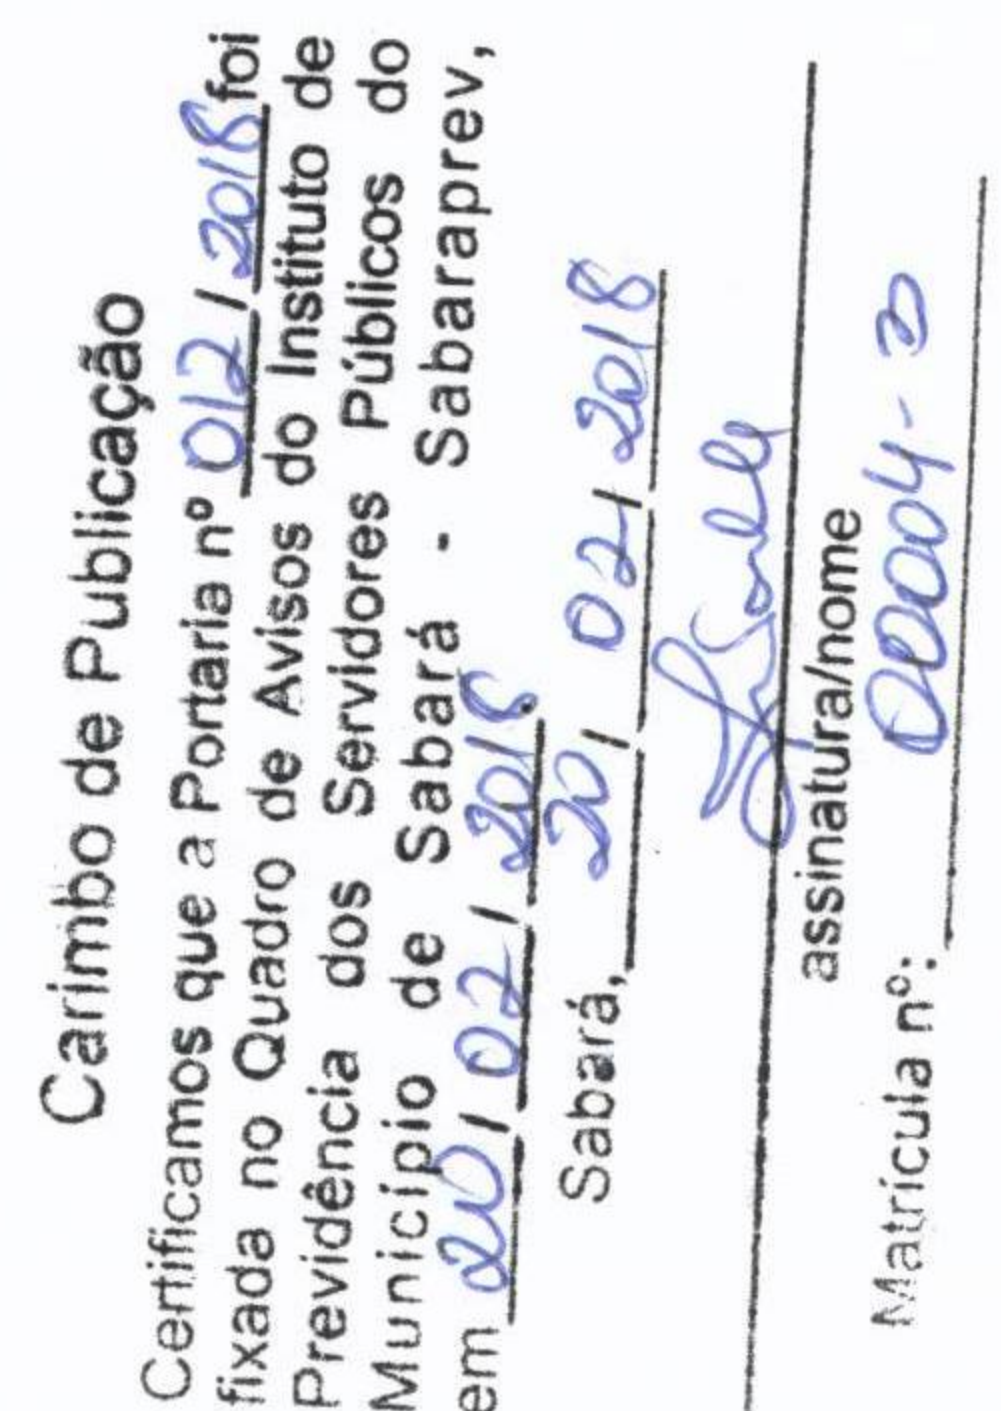 Carimbo de Publicação
Certificamos que a Portaria nº 012 / 2018 foi
fixada no Quadro de Avisos do Instituto de
Previdência dos Servidores Públicos do
Município de Sabará - Sabaraprev,
em 20 / 02 / 2018
Sabará, 20 / 02 / 2018
assinatura/nome
Matrícula nº: 00004-3